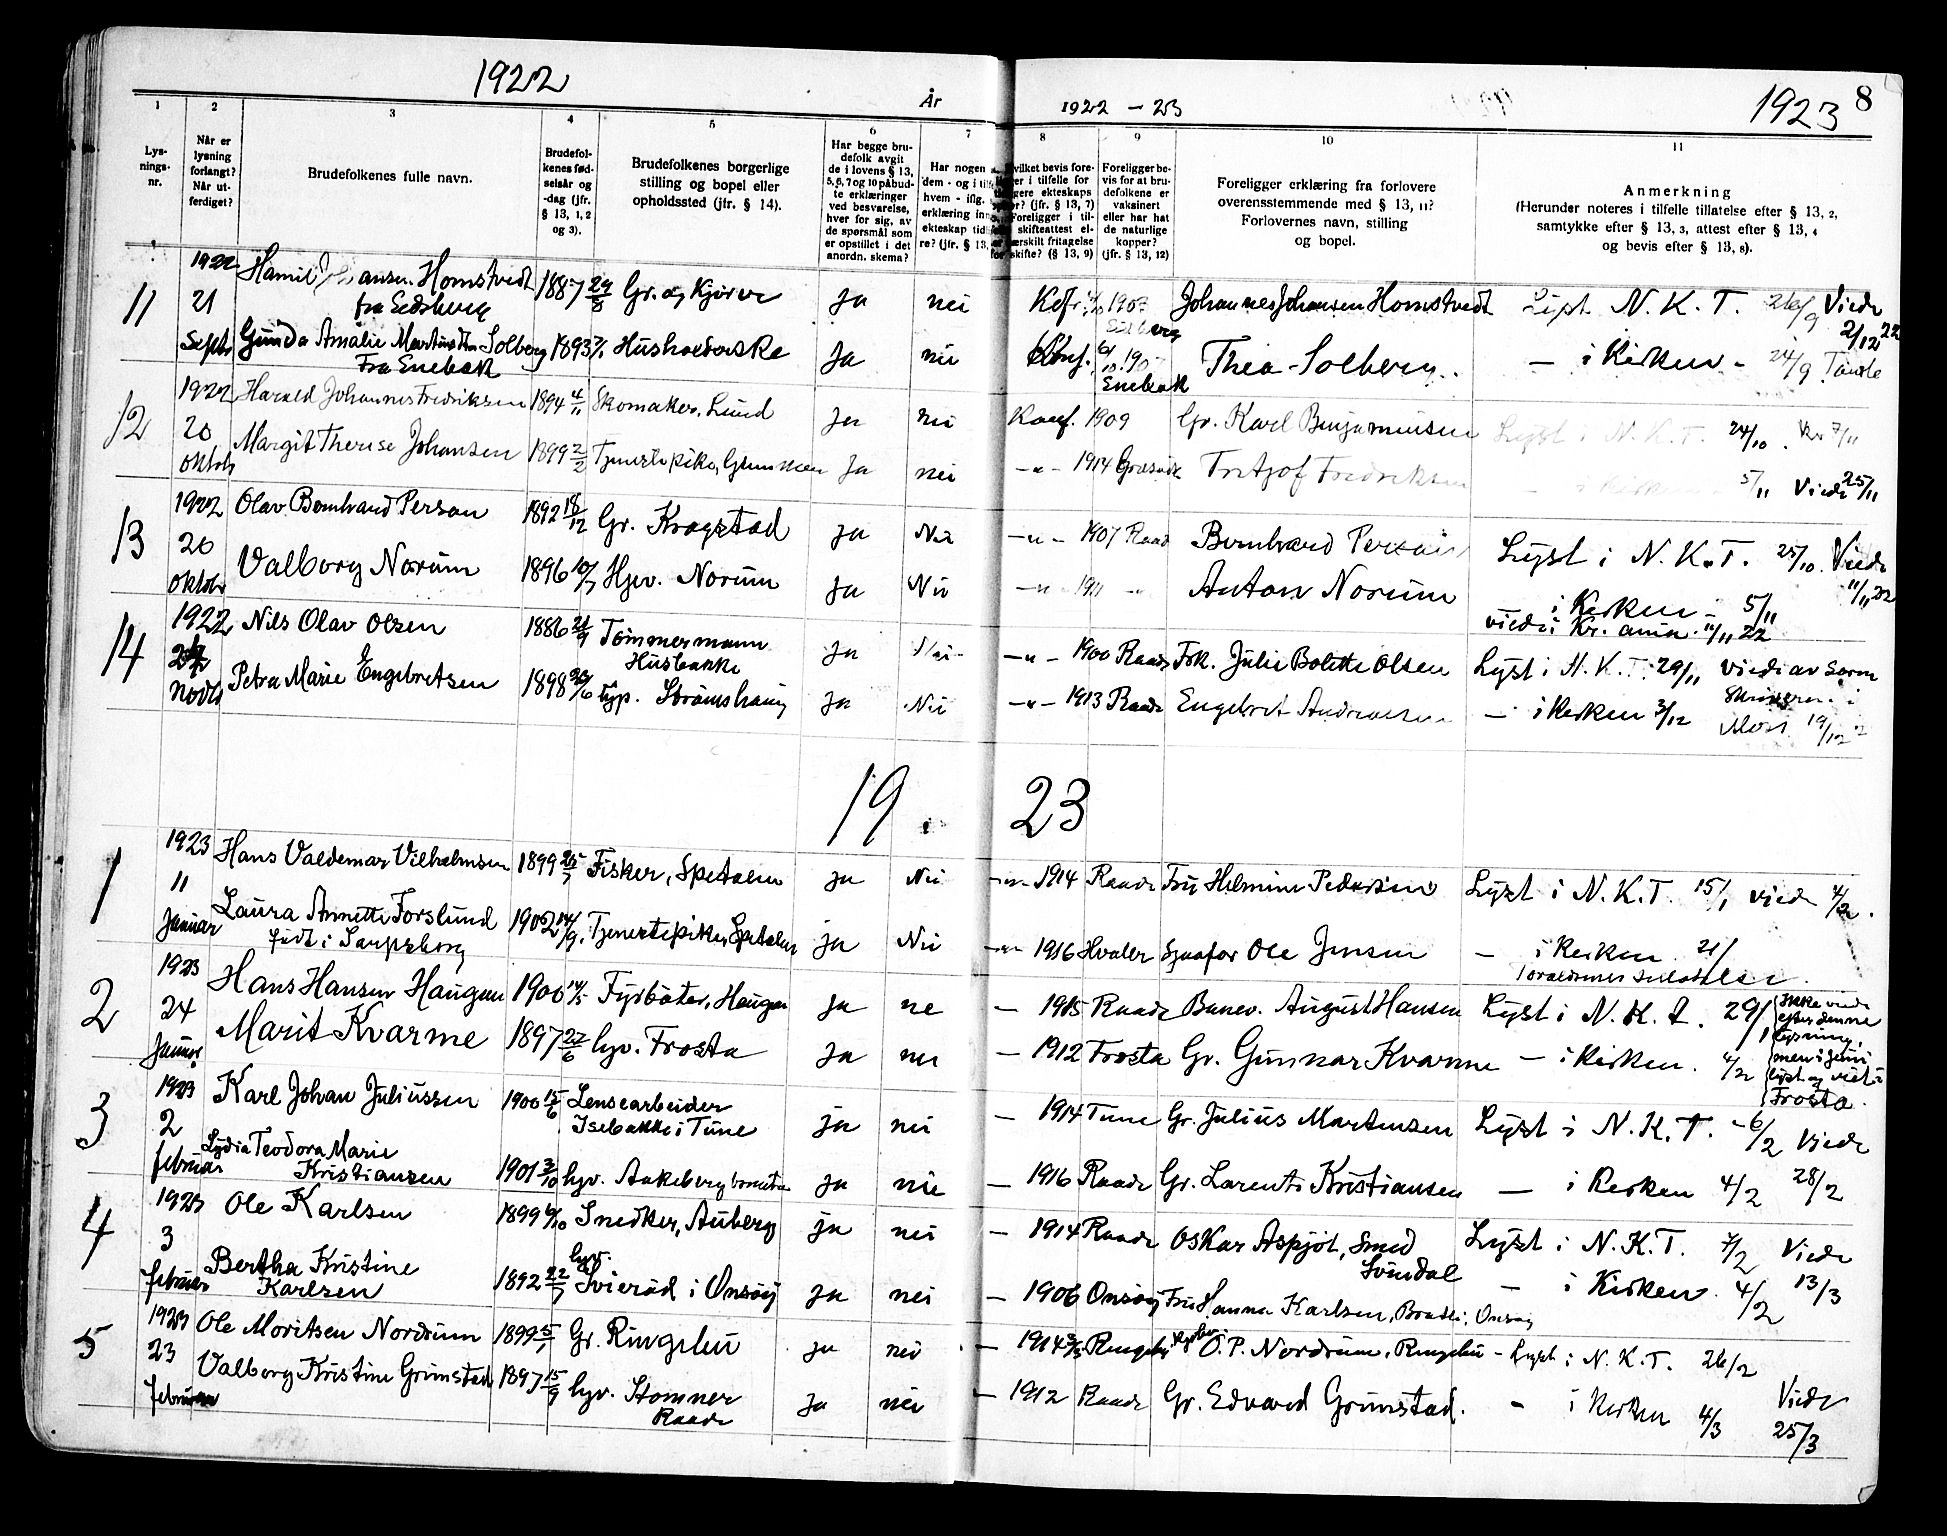 1922
År
1922 - 23
1923
8
1 2 3 4 5 6 7 8 9 10 11
Lys-
nings-
nr.
Når er
lysning
forlangt?
Når ut-
ferdiget?
Brudefolkenes fulle navn.
Brudefol-
kenes fød-
selsår og
-dag (jfr.
§ 13, 1, 2
og 3).
Brudefolkenes borgerlige
stilling og bopel eller
opholdssted (jfr. § 14).
Har begge bru-
defolk avgit
de i lovens § 13,
5, 6, 7 og 10 påbud-
te erklæringer
ved besvarelse,
hver for sig, av
de spørsmål som
er opstillet i det
anordn. skema?
Har nogen
dem - og i tilf
hvem - iflg.
erklæring inn
ekteskap tid
re? (jfr. § 13,
Foreligger be-
vis for at bru-
defolkene er
vaksinert
eller har hat
de naturlige
kopper?
(jfr. § 13, 12)
Foreligger erklæring fra forlovere
overensstemmende med § 13, 11?
Forlovernes navn, stilling
og bopel.
Anmerkning
(Herunder noteres i tilfelle tillatelse efter § 13, 2,
samtykke efter § 13, 3, attest efter § 13, 4
og bevis efter § 13, 8).
11 1922 21 Septbr
Homstvedt 1887 24/8 Gr. ja nei Johannes Johansen Homstvedt Lyst N. K. T. 26/9 Viede 2/12 22
Gunda Amalie Solberg 1893 Husholderske ja nei Thea Solberg - i Kirken - 24/9
Fra Enebak Enebak
12 1922 20 Oktob
Harald Johannes Fredriksen 1894 4/11 Skomaker, Lund ja nei Konf. 1909 Gr. Karl Benjaminsen Lyst i N. K. T. 24/10
Margit Therese Johansen 1899 2/2 Tjenestepike, ja nei -"- 1914 Fritjof Fredriksen - i Kirken 5/11 Viede 25/11
13 1922 20 Oktobr
Olav Bernhard Person 1892 18/12 Gr. Krogstad ja Nei -"- 1907 Raade Bernhard Person Lyst i N. K. T. 25/10 Viede 11/11 22
Valborg Norum 1896 10/7 Hjv. Norum ja Nei -"- 1911 -"- Anton Norum i Kirken - 5/11
viede i Kr. ania 11/11 22
14 1922 Novbr
Nils Olav Olsen 1886 21/9 Tømmermann ja Nei -"- 1900 Raade Frk. Julie Bolette Olsen Lyst i N. K. T. 29/11 Viedi av Soren
Husbakke
Petra Marie Engebretsen 1898 Strømshaug ja Nei -"- 1913 Raade Engebret Andreassen - i Kirken 3/12 Skriveren i
Moss 19/12
19 23
1 1923 11 Januar
Hans Valdemar Vilhelmsen 1899 25/7 Fisker, Spetalen ja Nei -"- 1914 Raade Fru Helmine Pedersen Lyst i N. K. T. 15/1 viede 4/2.
Laura Annette Forslund 1902 14/9. Tjenestepike, Spetalen ja Nei -"- 1916 Hvaler Ole Jensen - i Kirken 21/
født i Sarpsborg
2 1923 24 Januar
Hans Hansen Haugen 1900 14/5 Fyrbøter, Haugen ja ne - 1915 Raade Banev. August Hansen Lyst i N. K. T. 29/1 Ikke viede
efter denne
lysning,
Marit Kvarme 1897 27/6 hjv. Frosta ja nei - 1912 Frosta Gr. Gunnar Kvarme - i Kirken. 4/2 men i
lyst og viet i
Frosta.
3 1923 2 februar
Karl Johan Juliussen 1900 15/6 Lensearbeider ja nei - 1914 Tune Gr. Julius Martensen Lyst i N. K. T. - 6/2 Viede
Isebakke i Tune
Lydia Teodora Marie
Kristiansen 1901 3/10 hjv. Aakeberg ja nei - 1916 Raade Gr. Larents Kristiansen - i Kirken 4/2 28/2
4 1923 3 februar
Ole Karlsen 1899 6/10 Snedker, Auberg ja nei - 1914 Raade Oskar Aspjøl, Smed Lyst i N. K. T. 7/2 Viede
Svindal
Bertha Kristine
Karlsen 1892 22/7 hjv. Svierød i Onsøy ja nei - 1906 Onsøy Fru Hanna Karlsen, Onsøy - i Kirken 4/2 13/3
5 1923 23 februar
Ole Moritsen Nordrum 1899 5/1 Gr. Ringebu ja nei - 1914 O. P. Nordrum, Ringebu - Lyst i N. K. T. 26/2
Valborg Kristine Grimstad 1897 15/9 hjv. Stomner ja nei - 1912 Raade Gr. Edvard Grimstad. - i Kirken 4/3 Viede
Raade 25/3